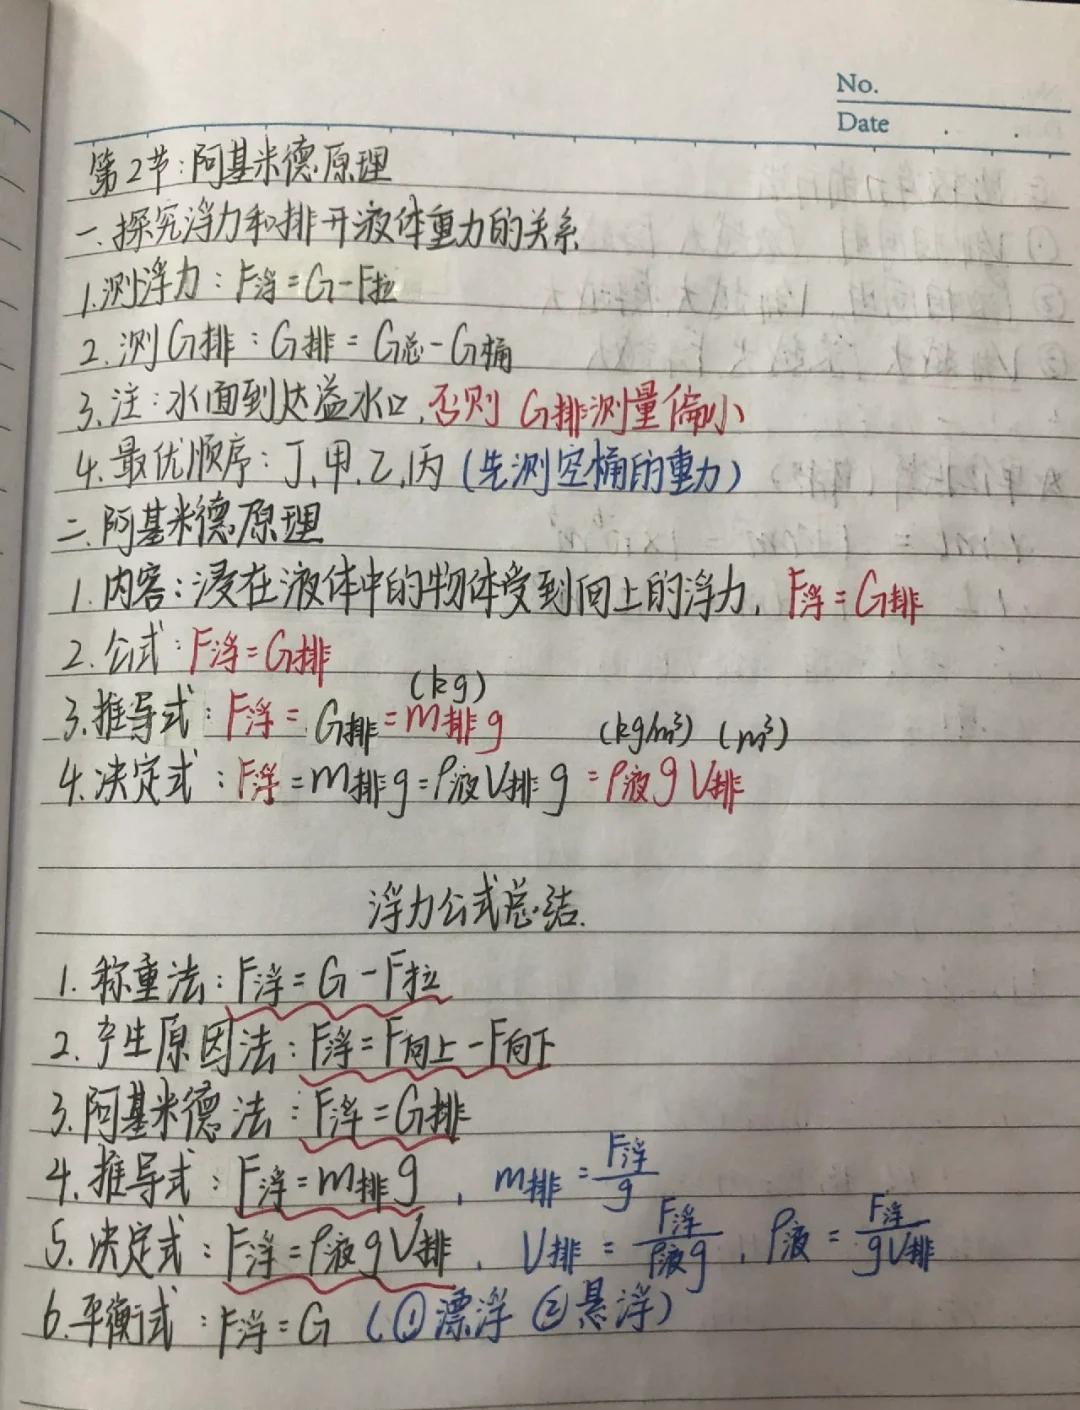 No.
Date
第2节:阿基米德原理
一.探究浮力和排开液体重力的关系
1.测浮力:F浮=G-F拉
2.测G排:G排=G总-G桶
3.注:水面到达溢水口,否则G排测量偏小
4.最优顺序:丁,甲,乙,丙(先测空桶的重力)
二.阿基米德原理
1.内容:浸在液体中的物体受到向上的浮力,F浮=G排
2.公式:F浮=G排
(kg)
3.推导式:F浮=G排=m排g
(kg/m³) (m³)
4.决定式:F浮=m排g=ρ液V排g=ρ液gV排
浮力公式总结.
1.称重法:F浮=G-F拉
2.产生原因法:F浮=F向上-F向下
3.阿基米德法:F浮=G排
4.推导式:F浮=m排g,m排=F浮/g
5.决定式:F浮=ρ液gV排,V排=F浮/ρ液g,ρ液=F浮/gV排
6.平衡式:F浮=G(①漂浮②悬浮)